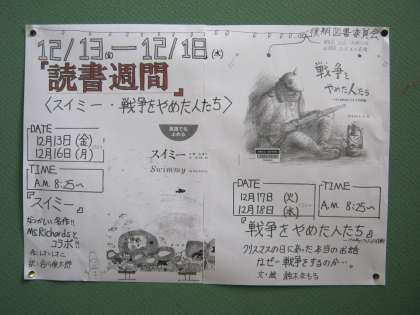 12/13(金)―12/18(水)
『読書週間』
〈スイミー・戦争をやめた人たち〉
DATE
12月13日(金)
12月16日(月)
TIME
A.M. 8:25〜
『スイミー』
なつかしい名作!!
Ms.Richardsと
コラボ!!
英語でも
よめる
スイミー
Swimmy
戦争を
やめた人たち
DATE
12月17日(火)
12月18日(水)
TIME
A.M. 8:25〜
『戦争をやめた人たち』
クリスマスの日にあった本当のお話
なぜ…戦争をするのか…。
文・絵 鈴木まもる